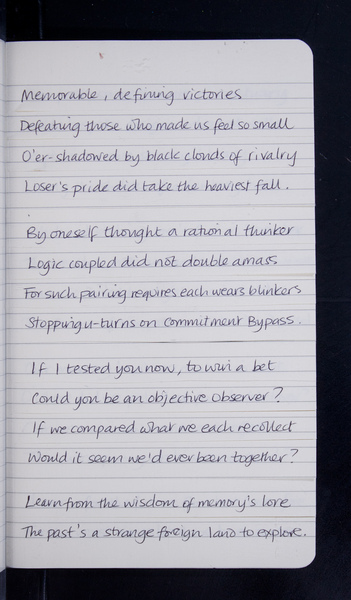 Memorable, defining victories
Defeating those who made us feel so small
O'er-shadowed by black clouds of rivalry
Loser's pride did take the heaviest fall.
By oneself thought a rational thinker
Logic coupled did not double amass
For such pairing requires each wears blinkers
Stopping u-turns on commitment Bypass.
If I tested you now, to win a bet
Could you be an objective observer?
If we compared what we each recollect
Would it seem we'd ever been together?
Learn from the wisdom of memory's lore
The past's a strange foreign land to explore.